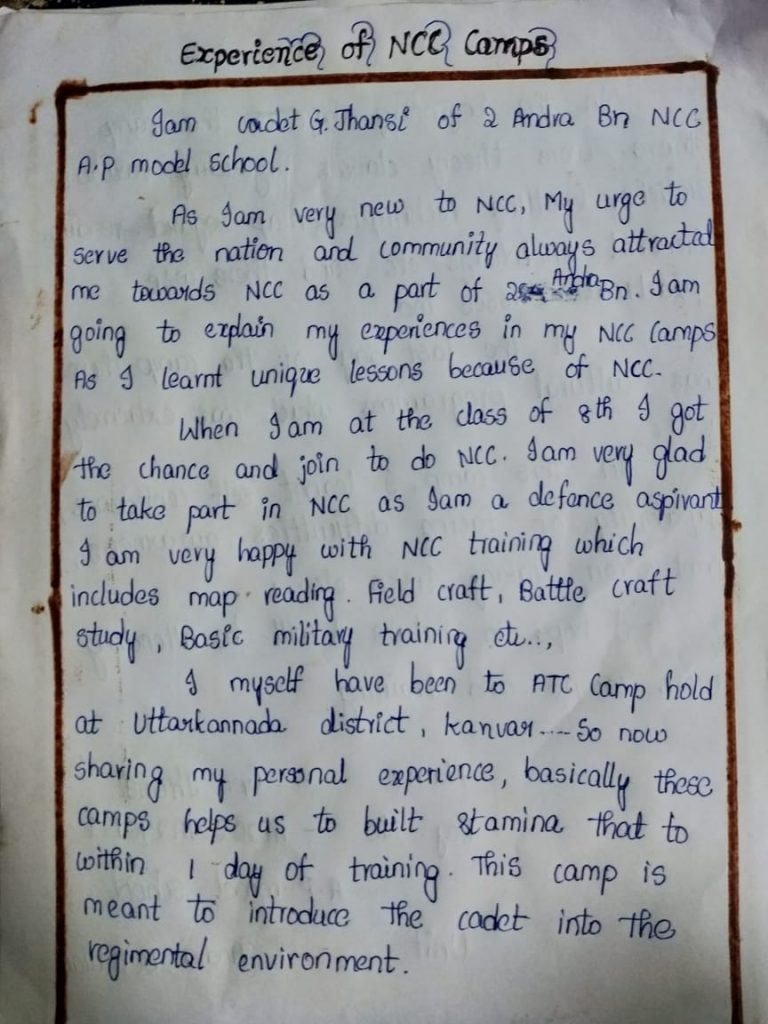 Experience of NCC Camps
Iam cadet G. Jhansi of 2 Andra Bn NCC
A.P model school.
As Iam very new to NCC, My urge to
serve the nation and community always attractal
me towards NCC as a part of 2 Andra Bn. Iam
going to explain my experiences in my NCC Camps
As I learnt unique lessons because of NCC.
When Iam at the class of 8th I got
the chance and join to do NCC. Iam very glad
to take part in NCC as Iam a defence aspirant
I am very happy with NCC training which
includes map reading. Field craft, Battle craft
study, Basic military training etc..,
I myself have been to ATC Camp hold
at Uttarkannada district, Kanvar.... So now
sharing my personal experience, basically these
camps helps us to built stamina that to
within 1 day of training. This camp is
meant to introduce the cadet into the
regimental environment.